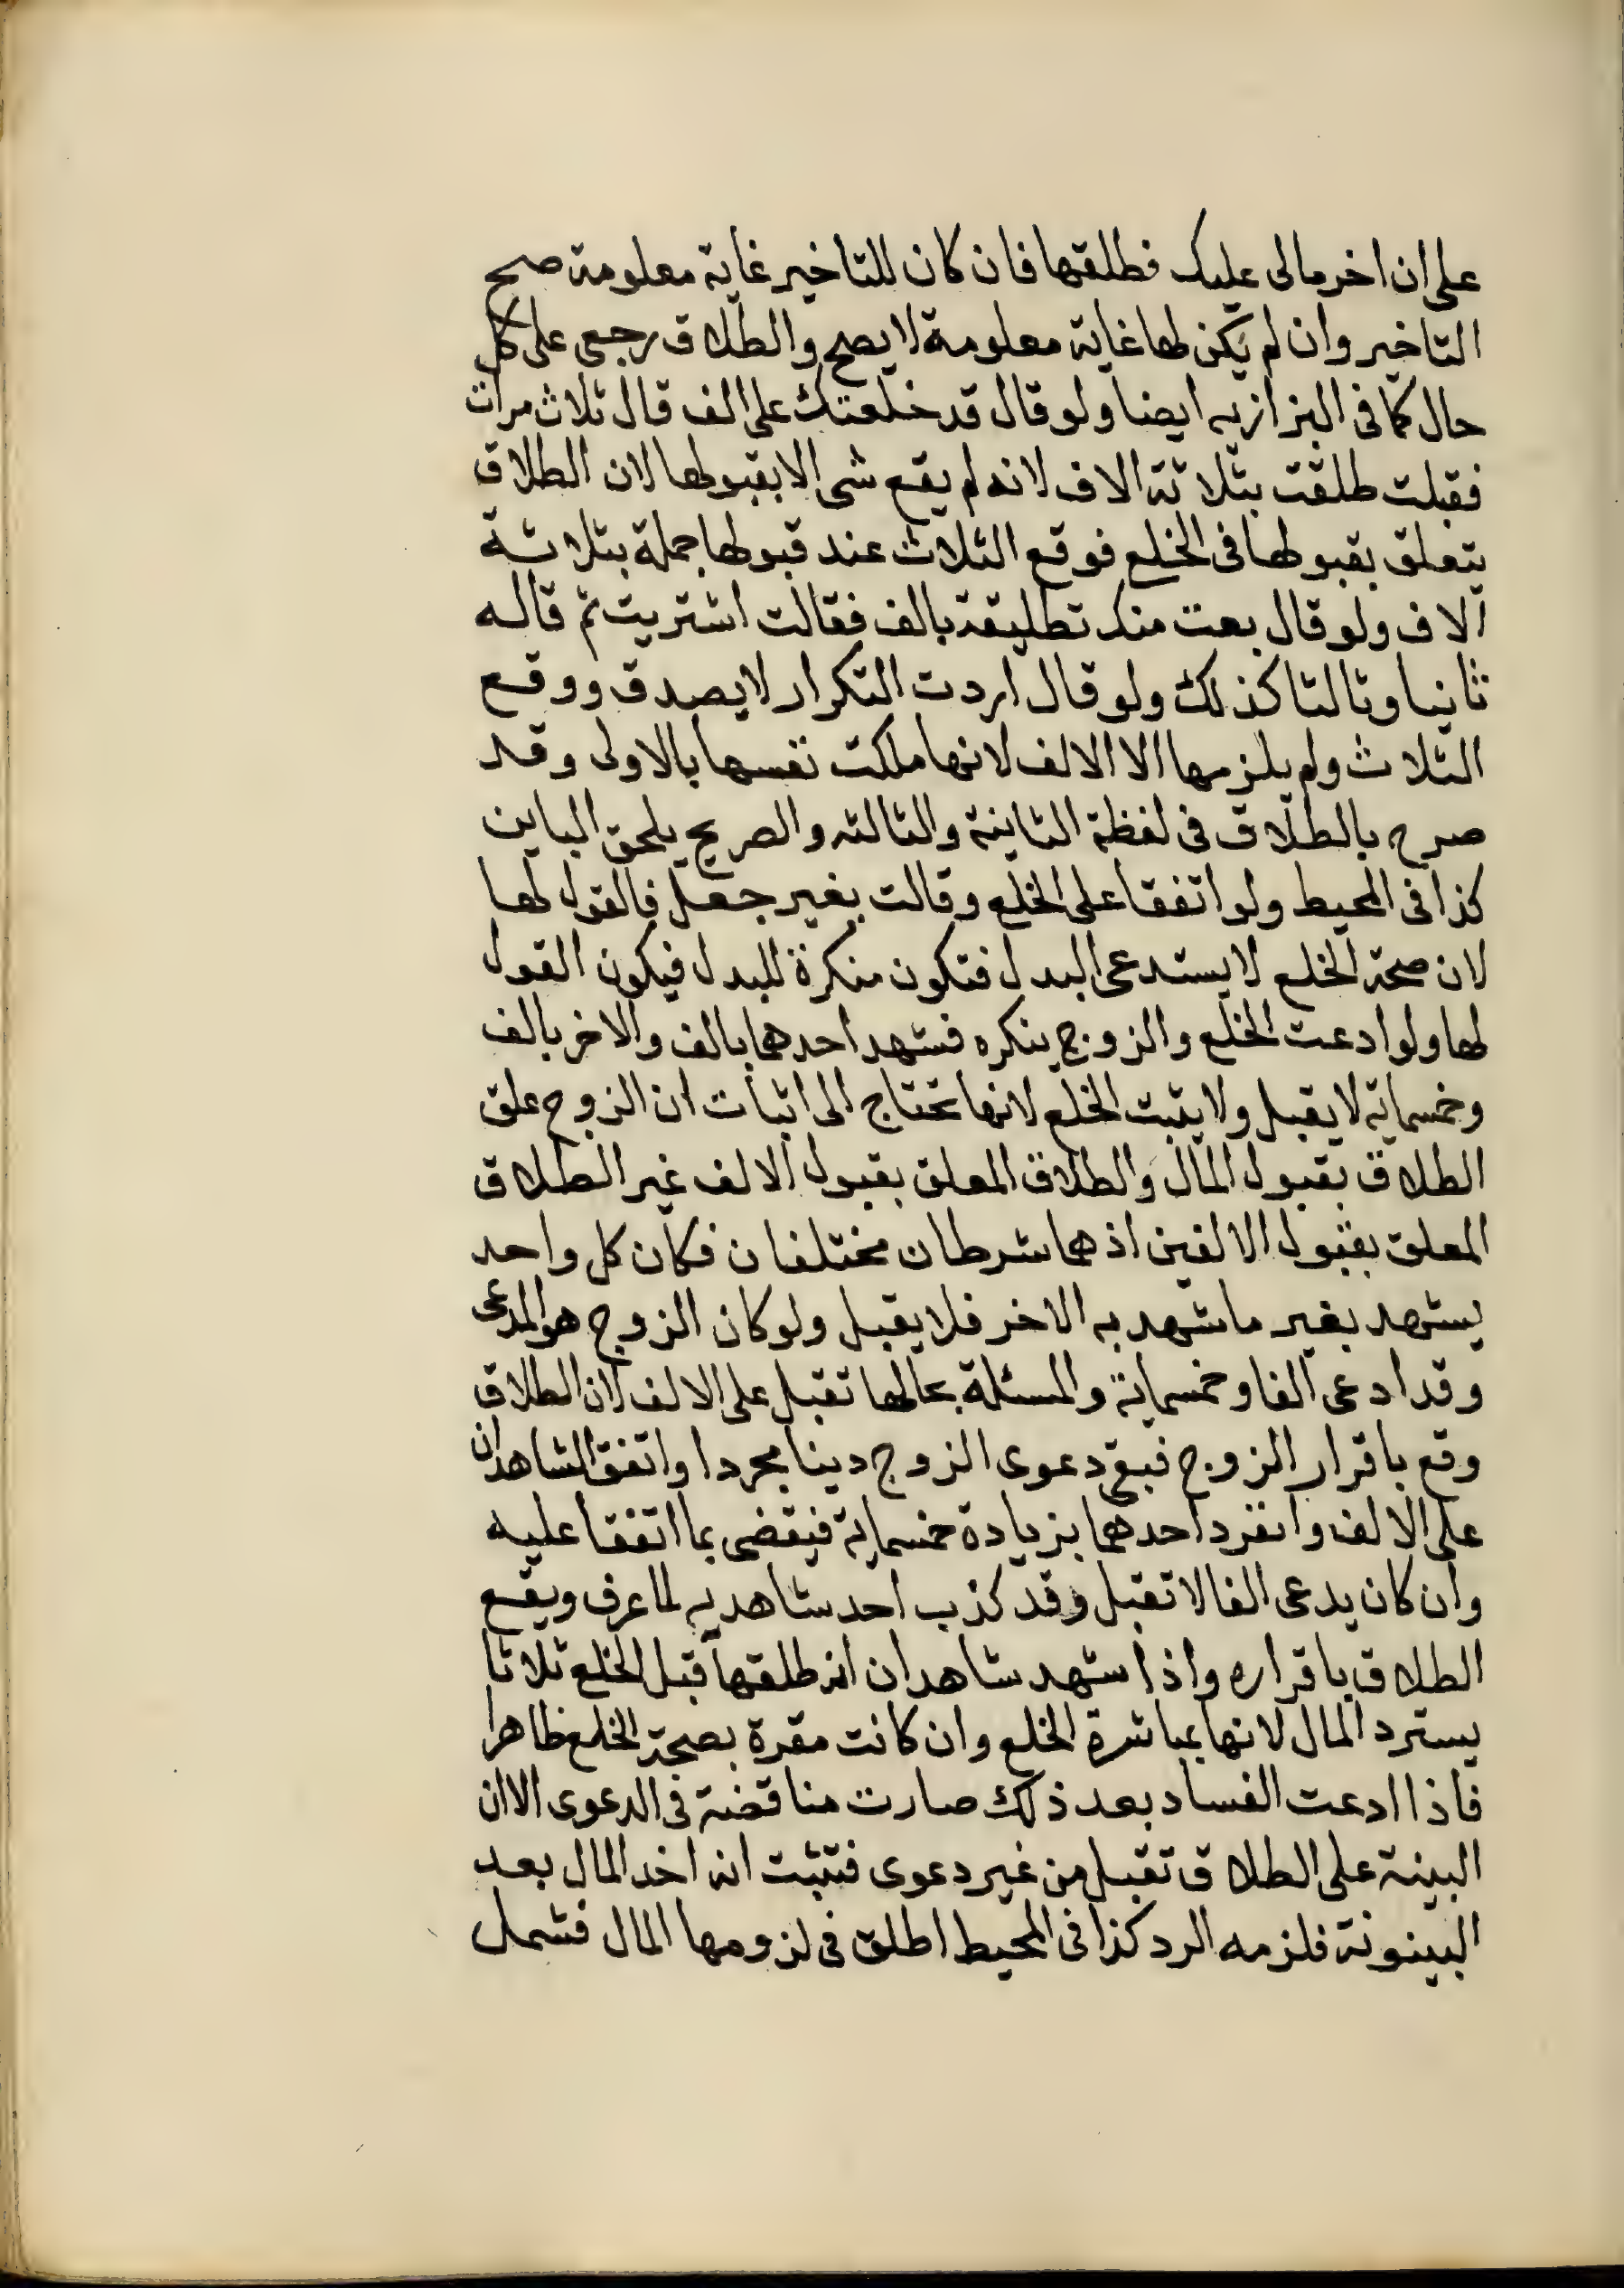 على ان اخر مالى عليك فطلقها فان كان للتاخير غاية معلومة صح
التاخير وان لم يكن لها غاية معلومة لا يصح والطلاق رجعى على كل
حال كما فى البزازيه ايضا ولو قال قد خلعتك على الف قال ثلاث مرات
فقبلت طلقت بثلاثة الاف لانه لم يقع شى الا بقبولها لان الطلاق
يتعلق بقبولها فى الخلع فوقع الثلاث عند قبولها جملة بثلاثة
آلاف ولو قال بعت منك تطليقة بالف فقالت اشتريت ثم قاله
ثانيا وثالثا كذلك ولو قال اردت التكرار لا يصدق ووقع
الثلاث ولم يلزمها الا الالف لانها ملكت نفسها بالاولى وقد
صرح بالطلاق فى لفظة الثانية والثالثه والصريح يلحق الباين
كذا فى المحيط ولو اتفقا على الخلع وقالت بغير جعل فالقول لها
لان صحة الخلع لا يستدعى البدل فتكون منكرة للبدل فيكون القول
لها ولو ادعت الخلع والزوج ينكره فشهد احدهما بالف والاخر بالف
وخمسماية لا يقبل ولا يثبت الخلع لانها تحتاج الى اثبات ان الزوج علق
الطلاق بقبول المال والطلاق المعلق بقبول الالف غير الطلاق
المعلق بقبول الالفين اذ هما شرطان مختلفان فكان كل واحد
يشهد بغير ما شهد به الاخر فلا يقبل ولو كان الزوج هو المدعى
وقد ادعى الفا وخمسماية والمسئلة بحالها تقبل على الالف لان الطلاق
وقع باقرار الزوج فبقى دعوى الزوج دينا مجردا واتفق الشاهدان
على الالف وانفرد احدهما بزيادة خمسماية فيقضى بما اتفقا عليه
وان كان يدعى الفا لا تقبل وقد كذب احد شاهديه لما عرف ويقع
الطلاق باقراره واذا شهد شاهدان انه طلقها قبل الخلع ثلاثا
يسترد المال لانها بمباشرة الخلع وان كانت مقرة بصحة الخلع ظاهرا
فاذا ادعت الفساد بعد ذلك صارت مناقضة فى الدعوى الا ان
البينة على الطلاق تقبل من غير دعوى فتثبت انه اخد المال بعد
البينونة فلزمه الرد كذا فى المحيط اطلق فى لزومها المال فشمل